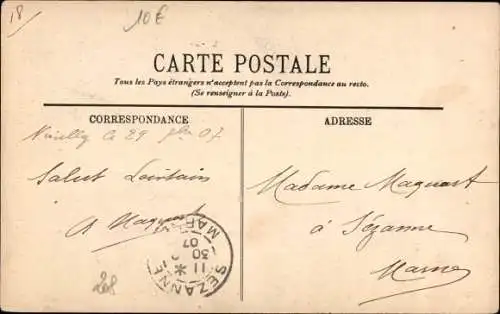 18
10€
CARTE POSTALE
Tous les Pays étrangers n'acceptent pas la Correspondance au recto.
(Se renseigner à la Poste).
CORRESPONDANCE
ADRESSE
le 29 9bre 07
Salut Lointain
A Maquart
Madame Maquart
à Sézanne
Marne
SÉZANNE
MARNE
11
30
07